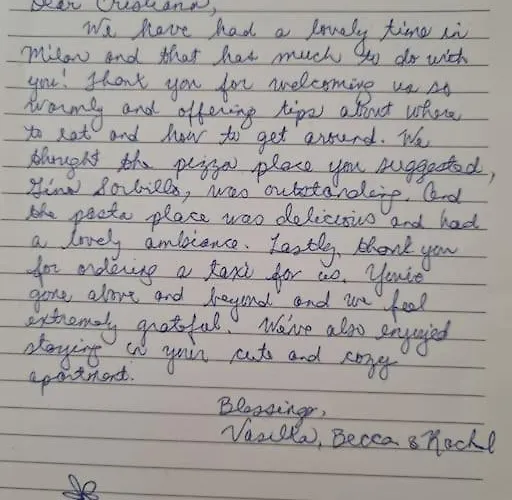 Dear Cristiana,
We have had a lovely time in
Milan and that has much to do with
you! Thank you for welcoming us so
warmly and offering tips about where
to eat and how to get around. We
thought the pizza place you suggested,
Gino Sorbillo, was outstanding. And
the pasta place was delicious and had
a lovely ambiance. Lastly, thank you
for ordering a taxi for us. You've
gone above and beyond and we feel
extremely grateful. We've also enjoyed
staying in your cute and cozy
apartment.
Blessings,
Vasilla, Becca & Rachel